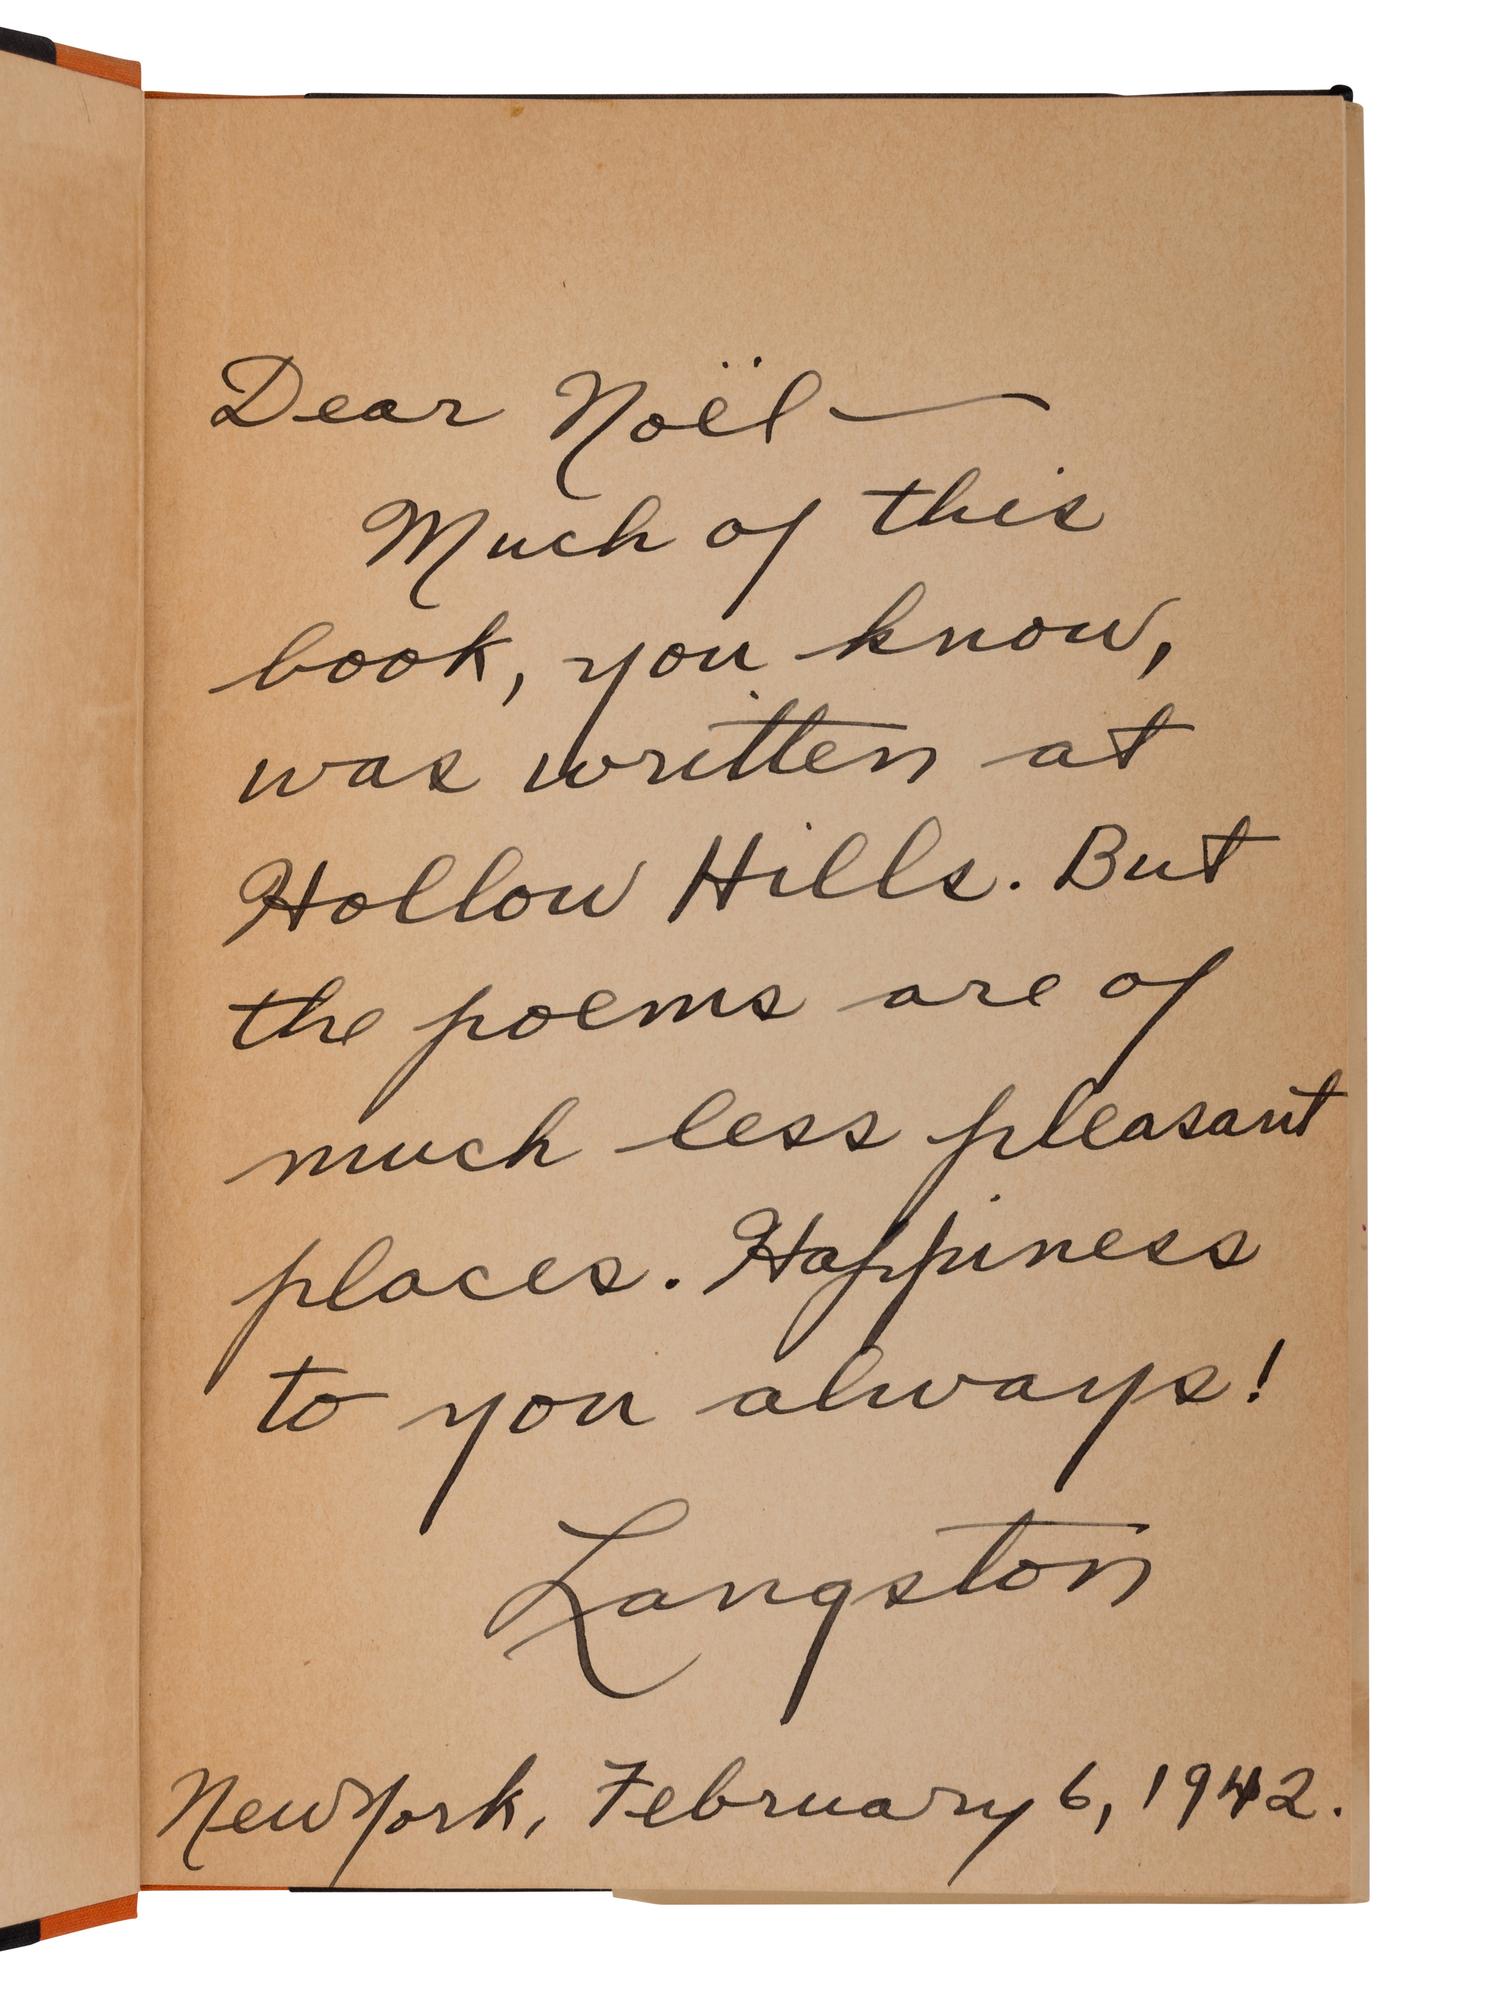 Dear Noël —
Much of this
book, you know,
was written at
Hollow Hills. But
the poems are of
much less pleasant
places. Happiness
to you always!
Langston
New York, February 6, 1942.